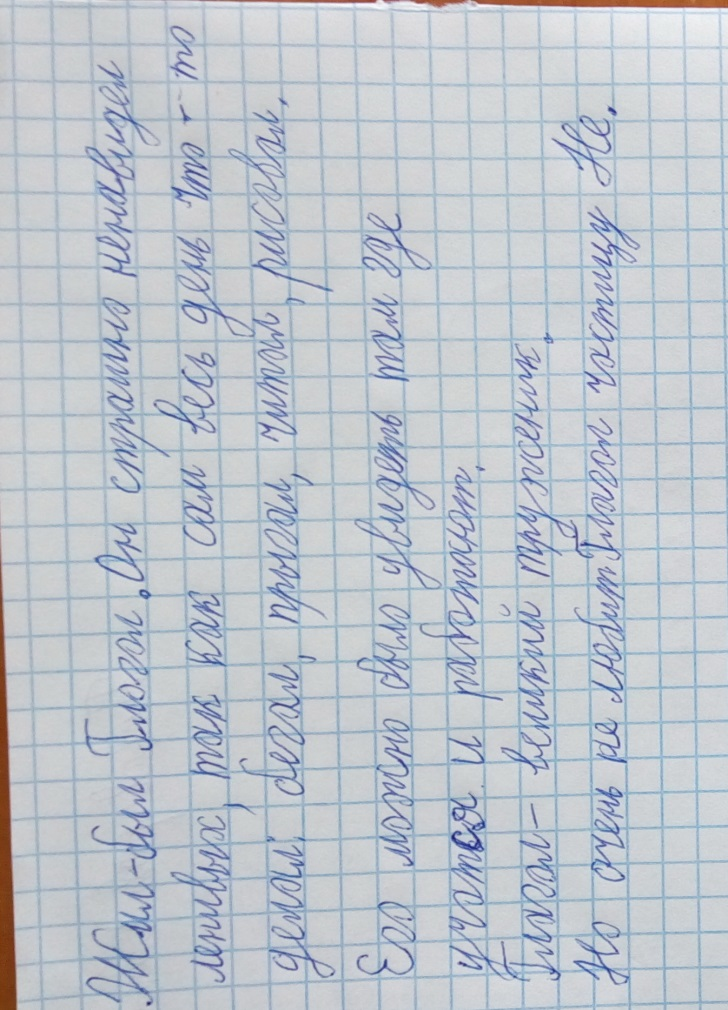 Жил-был Глагол. Он страшно ненавидел
ленивых, так как сам весь день что-то
делал: бегал, прыгал, читал, рисовал.
Его можно было увидеть там где
учатся и работают.
Глагол - великий труженик.
Но очень не любит Глагол частицу Не.